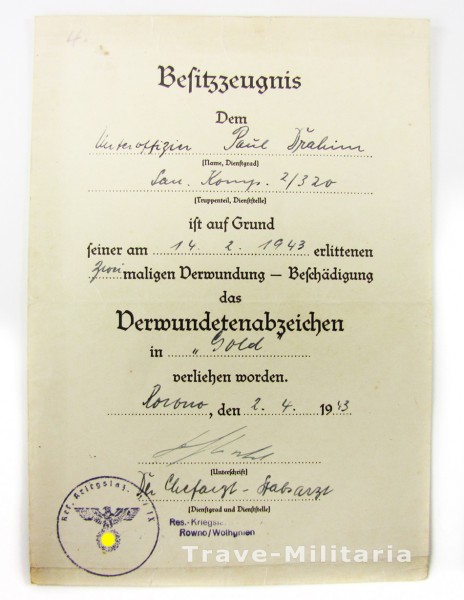 Besitzzeugnis
Dem
Unteroffizier Paul Drahim
(Name, Dienstgrad)
San. Komp. 2/320
(Truppenteil, Dienststelle)
ist auf Grund
seiner am 14. 2. 1943 erlittenen
zwei maligen Verwundung – Beschädigung
das
Verwundetenabzeichen
in "Gold"
verliehen worden.
Rowno, den 2. 4. 1943
(Unterschrift)
Der Chefarzt - Stabsarzt
(Dienstgrad und Dienststelle)
Res.-Kriegsl
Rowno/Wolhynien
Trave-Militaria